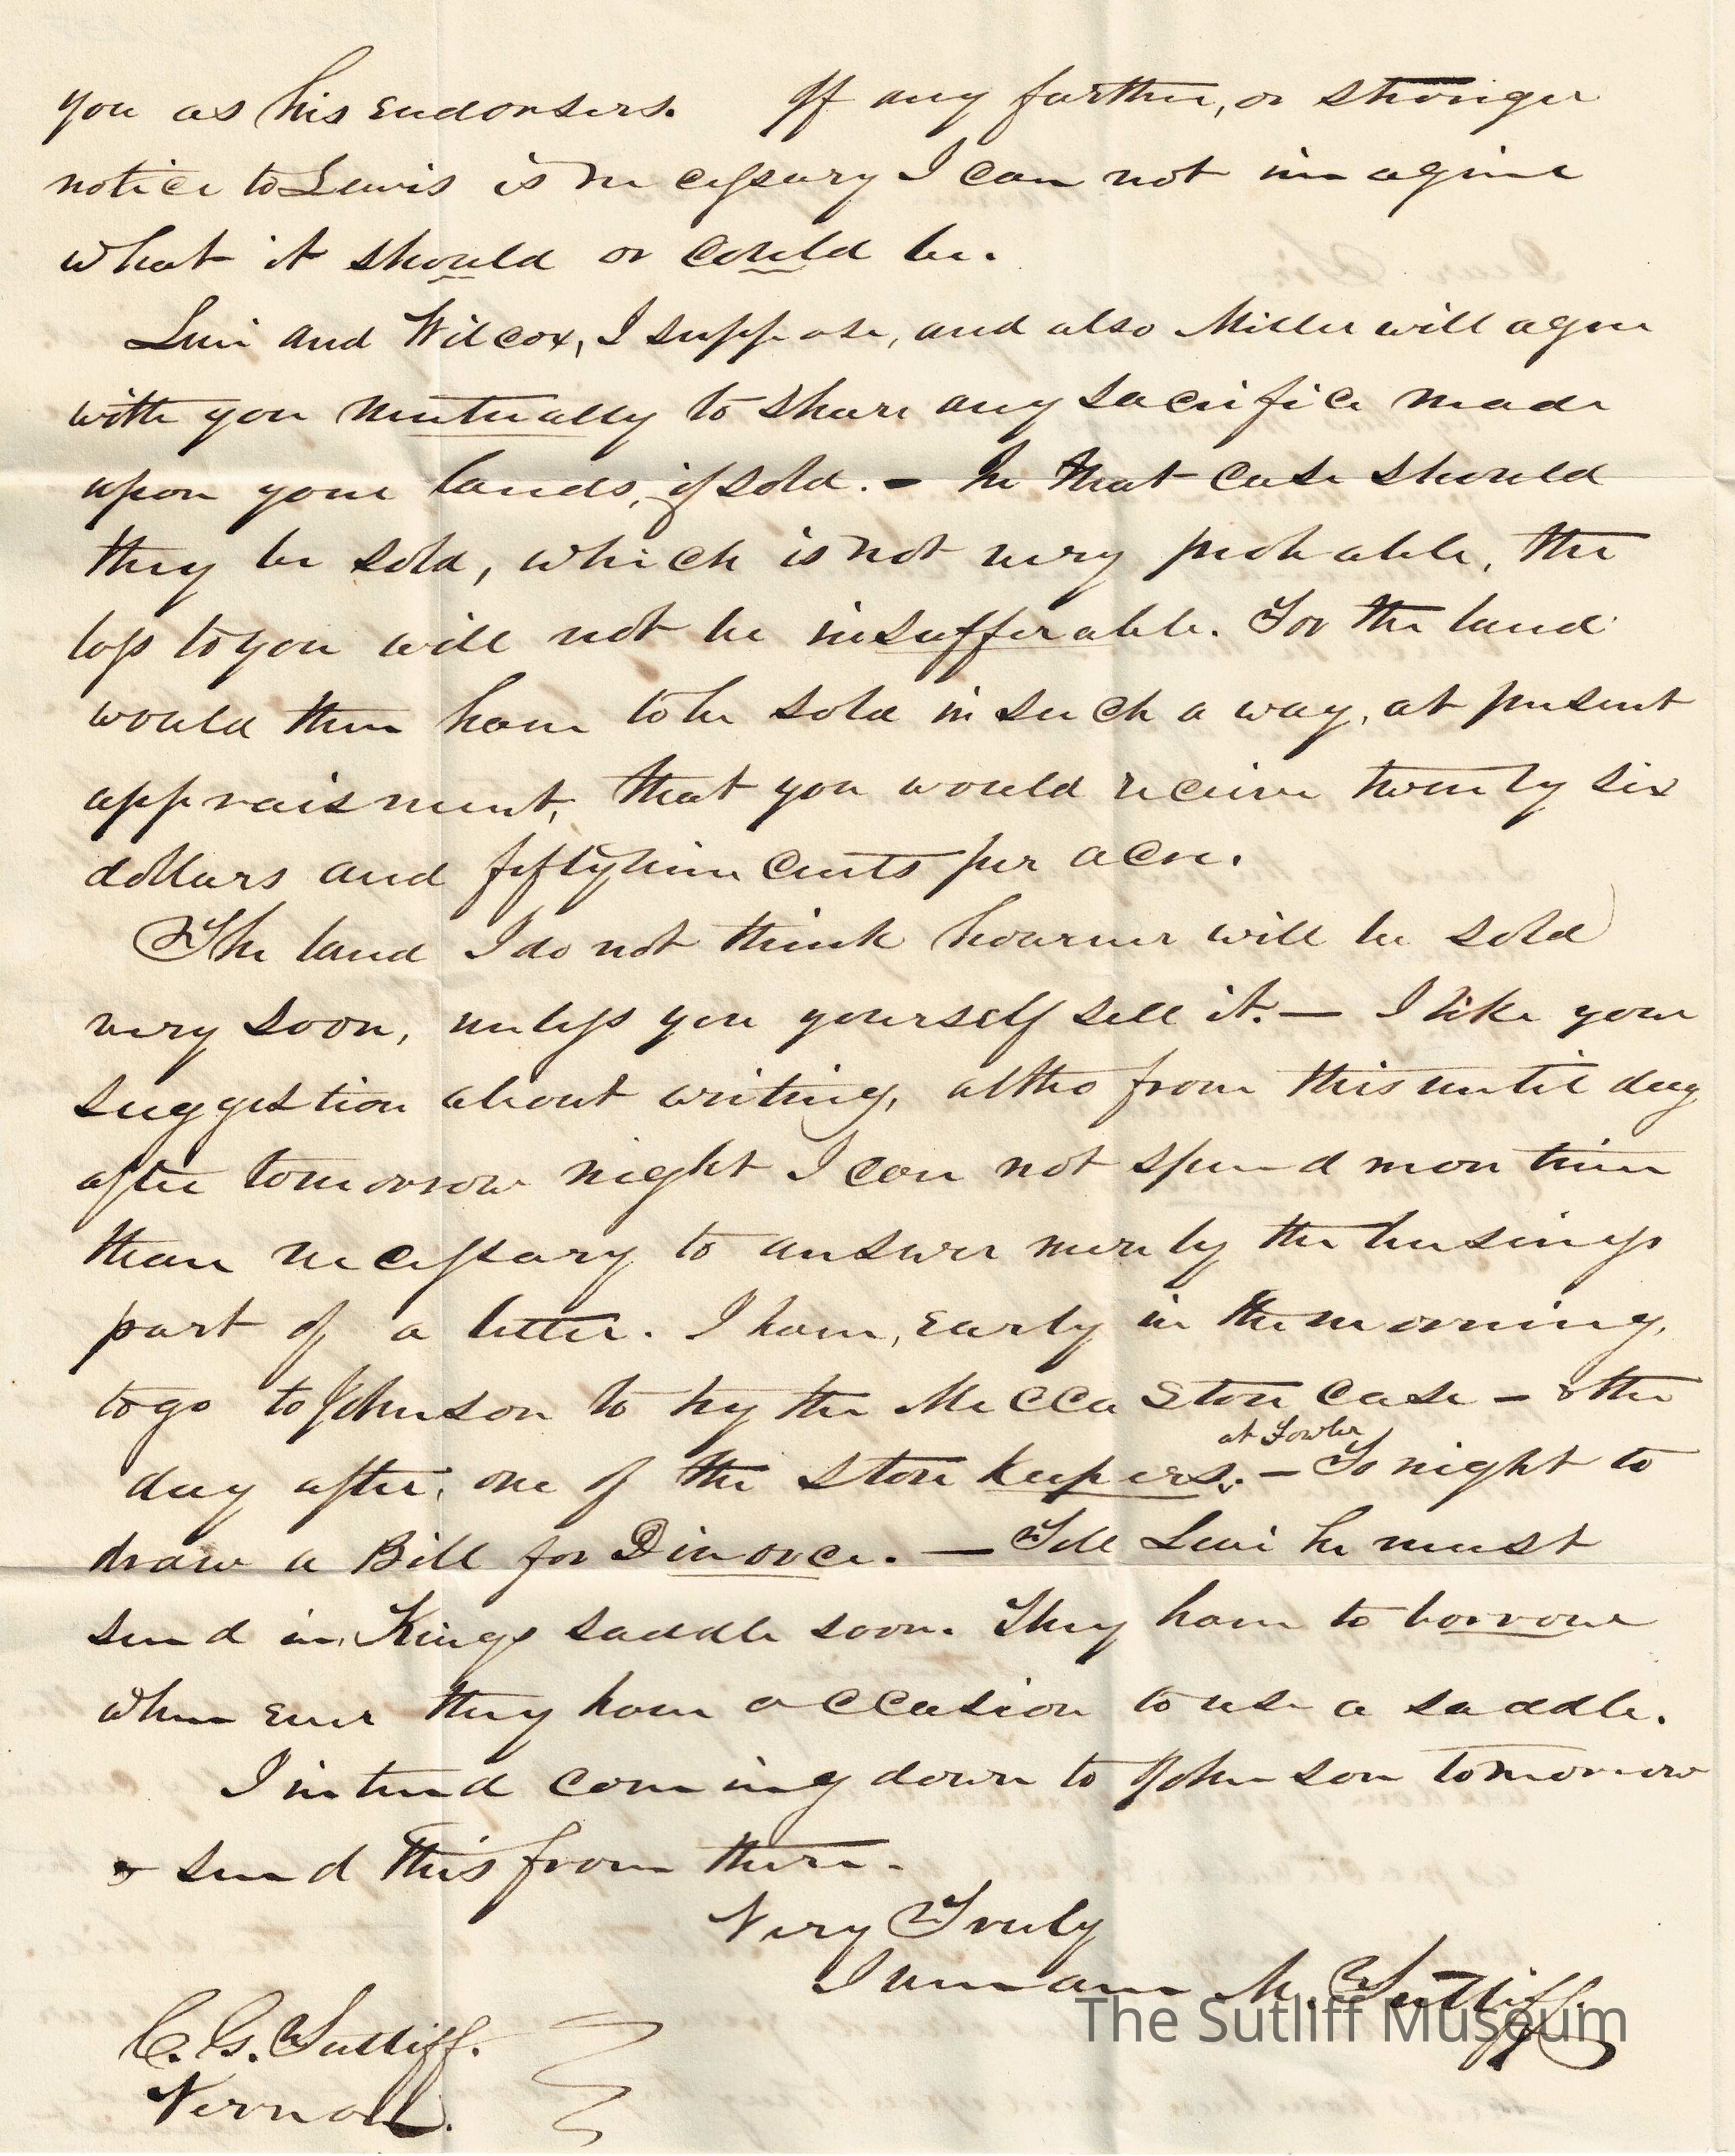 you as his endorsers. If any further, or stronger
notice to Lewis is necessary I can not imagine
what it should or could be.
Levi and Wilcox, I suppose, and also Miller will agree
with you mutually to share any sacrifice made
upon your lands, if sold. - In that case should
they be sold, which is not very probable, the
loss to you will not be insufferable. For the land
would then have to be sold in such a way, at present
appraisment, that you would receive twenty six
dollars and fifty nine cents per acre.
The land I do not think however will be sold
very soon, unless you yourself sell it. — I like your
suggestion about writing, altho from this until day
after tomorrow night I can not spend more time
than necessary to answer merely the business
part of a letter. I have, early in the morning,
to go to Johnson to try the Mecca Store case - & the
at Fowler
day after, one of the store keepers. — To night to
draw a Bill for Divorce. — Tell Levi he must
send in Kings saddle soon. They have to borrow
when ever they have occasion to use a saddle.
I intend coming down to Johnson tomorrow
& send this from there.
Very Truly
M. Sutliff
C. G. Sutliff.
Vernon.
The Sutliff Museum